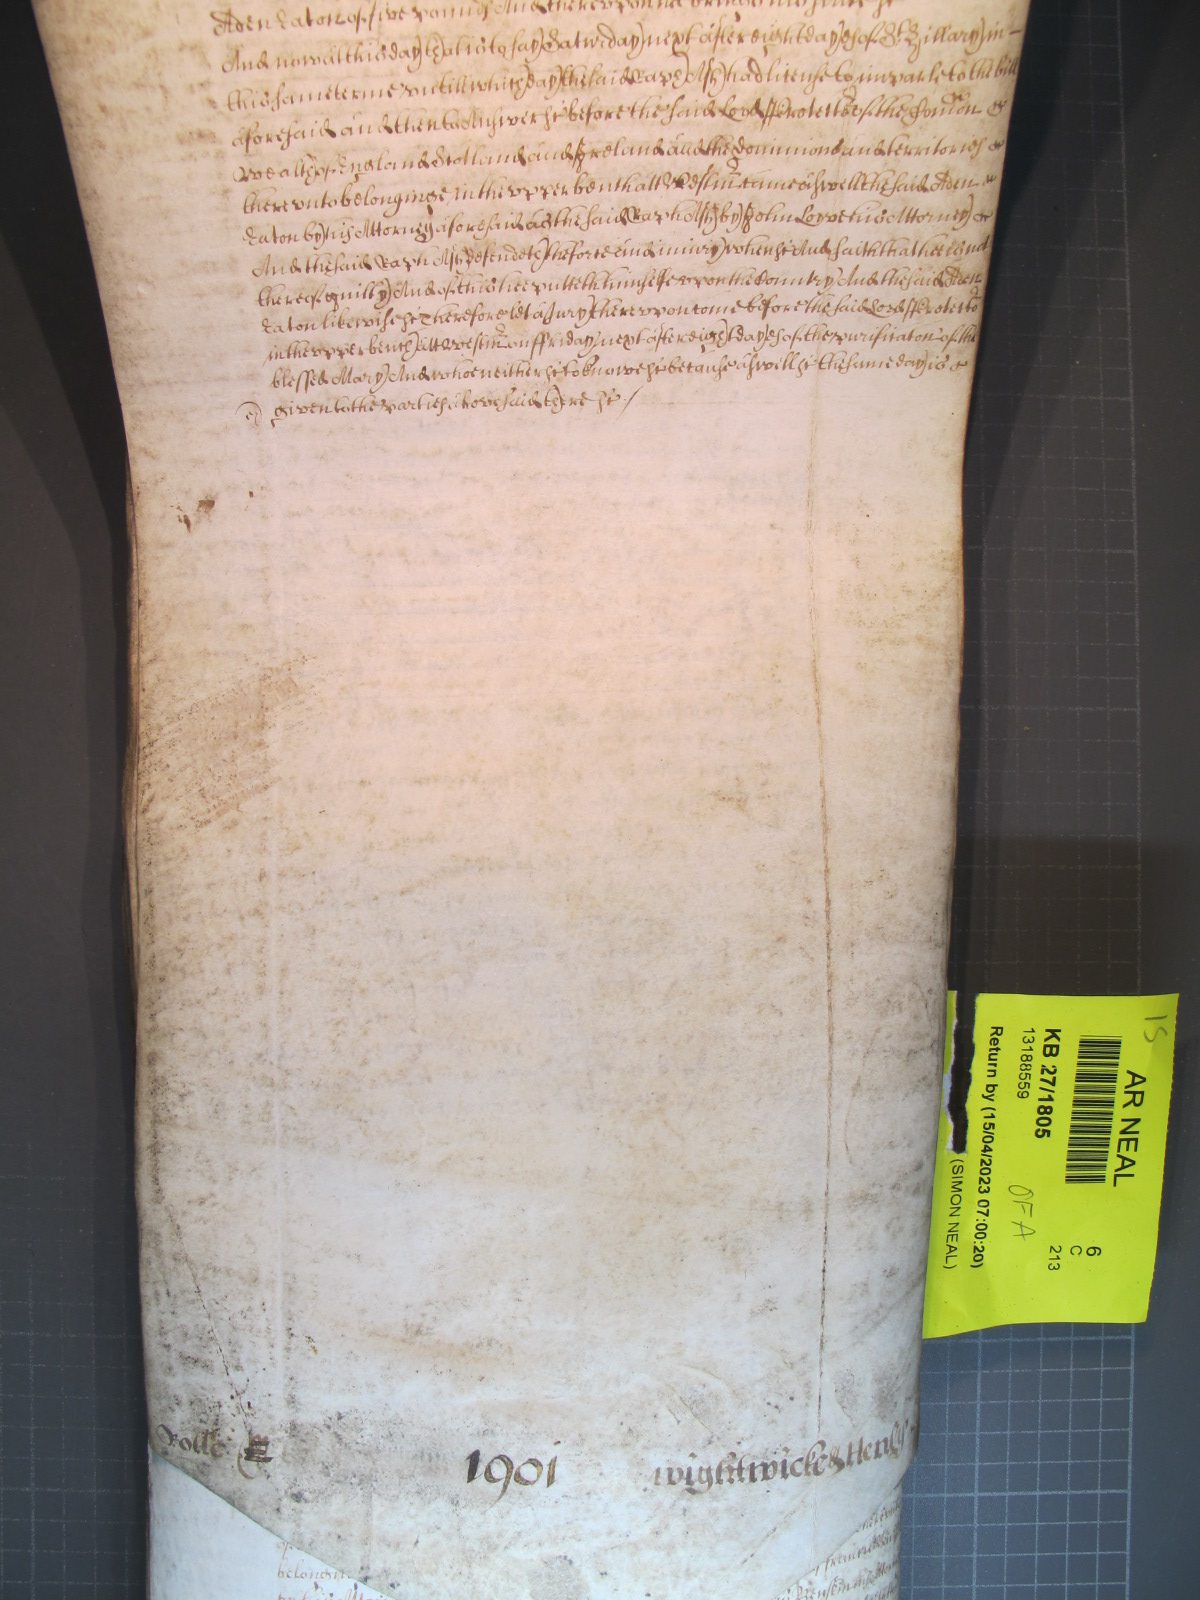 Aden Eaton of five pounds And thereupon he bringeth his suite &c
And now att this day that is to say Saturday next after eight dayes of St Hillary in
this same terme untill which day the said Raph Ash had license to imparle to the bill
aforesaid and then to Answer &c before the said Lord Protector of the Comon
wealth of England Scotland and Ireland and the dominions and territories
thereunto belonginge in the upper bench att Westmr came aswell the said Aden
Eaton by his Attorney aforesaid as the said Raph Ash by John his Attorney
And the said Raph Ash defendeth the force and iniury when &c And saith that hee is not
thereof guilty And of this hee putteth himselfe upon the Country And the said Aden
Eaton likewise &c Therefore lett a Jury thereupon come before the said Lord Protector
in the upper bench att Westmr on ffriday next after eight dayes of the purificaton of the
blessed Mary And who neither &c to know &c because aswell &c the same day is
given to the parties abovesaid there &c /
Rolle
1901
wightwicke &
belonginge
AR NEAL
15
KB 27/1805
13188559
Return by (15/04/2023 07:00:20)
(SIMON NEAL)
OFA
6
C
213